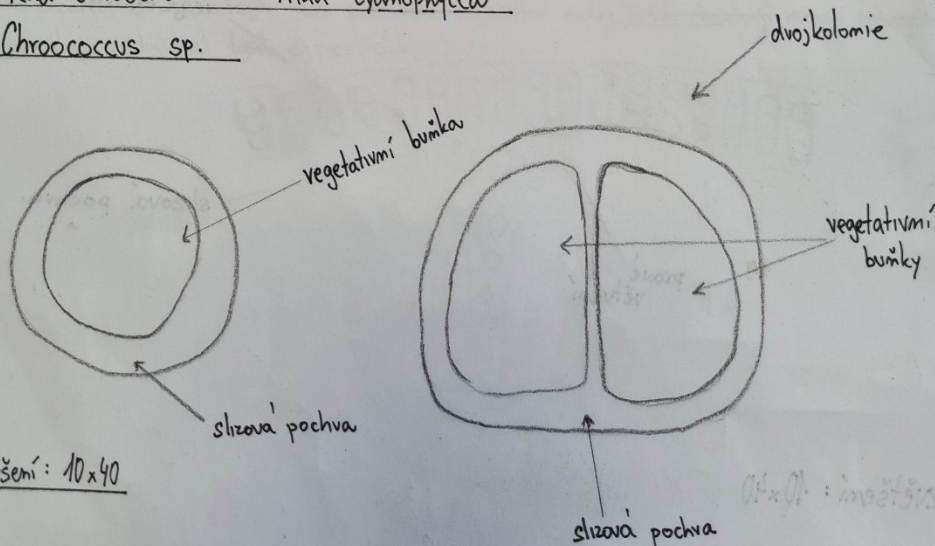 Chroococcus sp.
dvojkolonie
vegetativní buňka
vegetativní
buňky
slizová pochva
šení: 10x40
slizová pochva